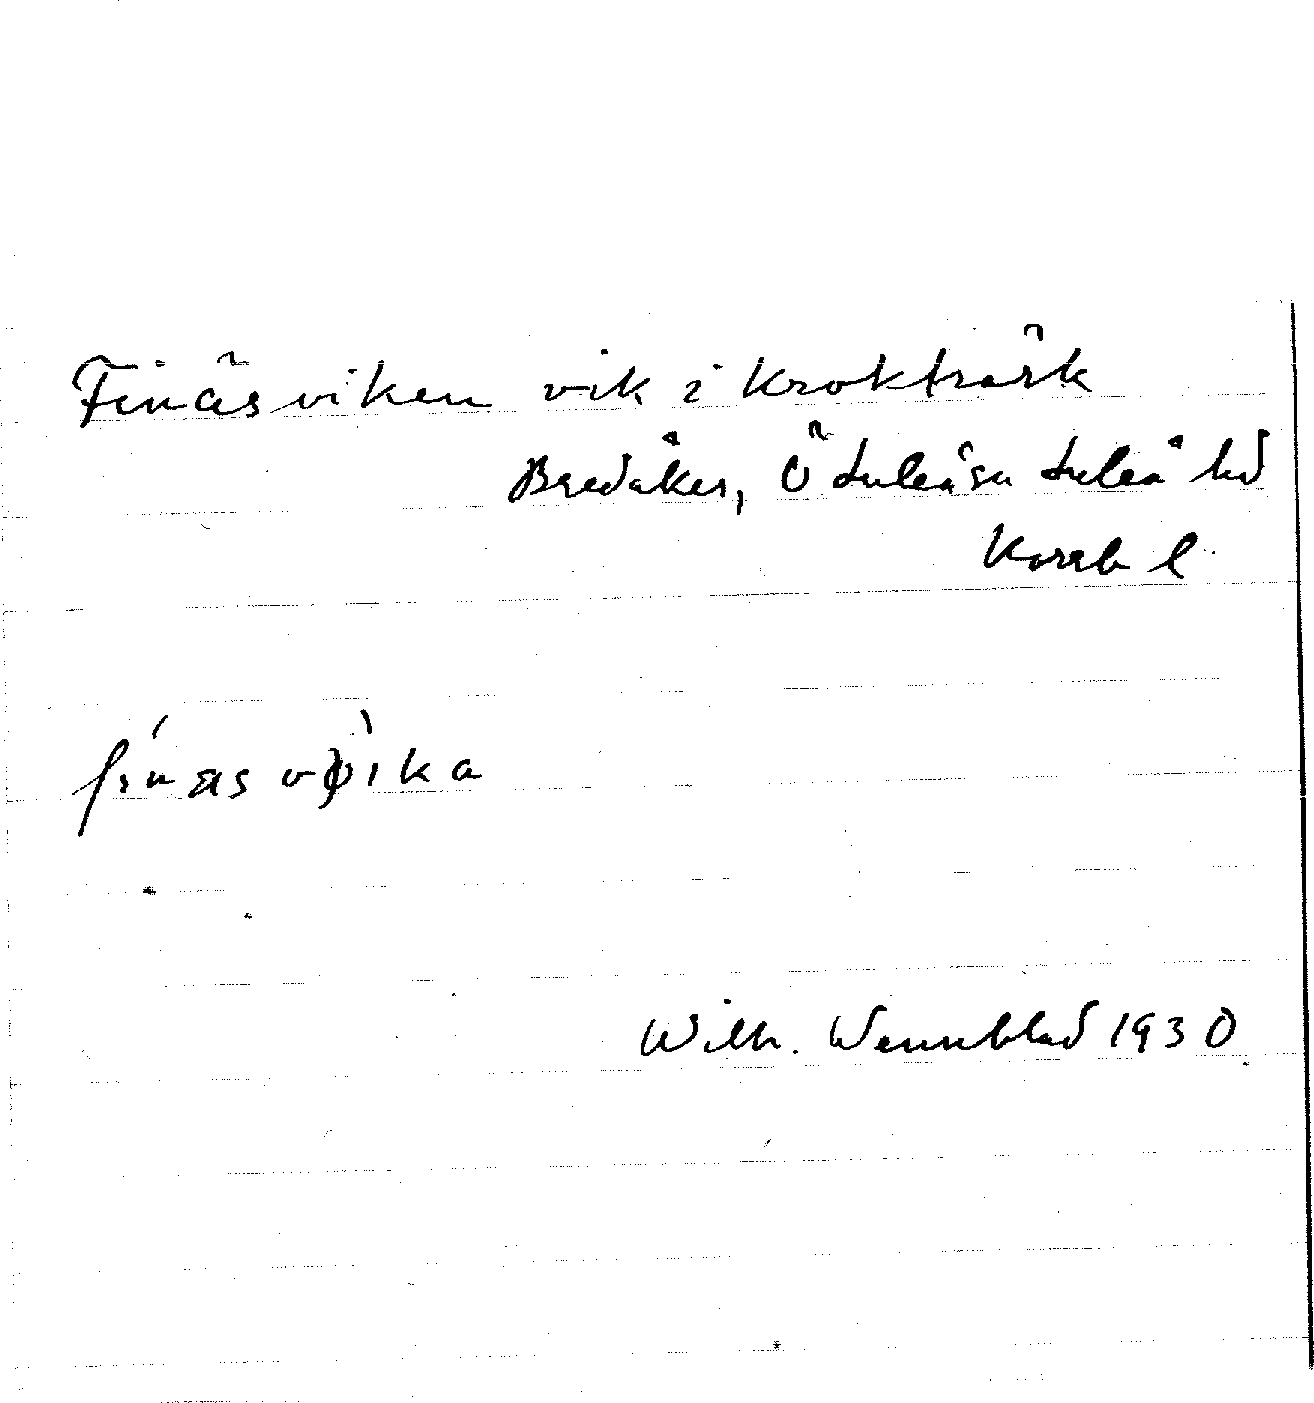 Finäsviken vik i Krokträsk
Bredåker, Ö Luleå sn Luleå hd
Norrb l.
fi´näsvφ`ika
Wilh. Wennblad 1930